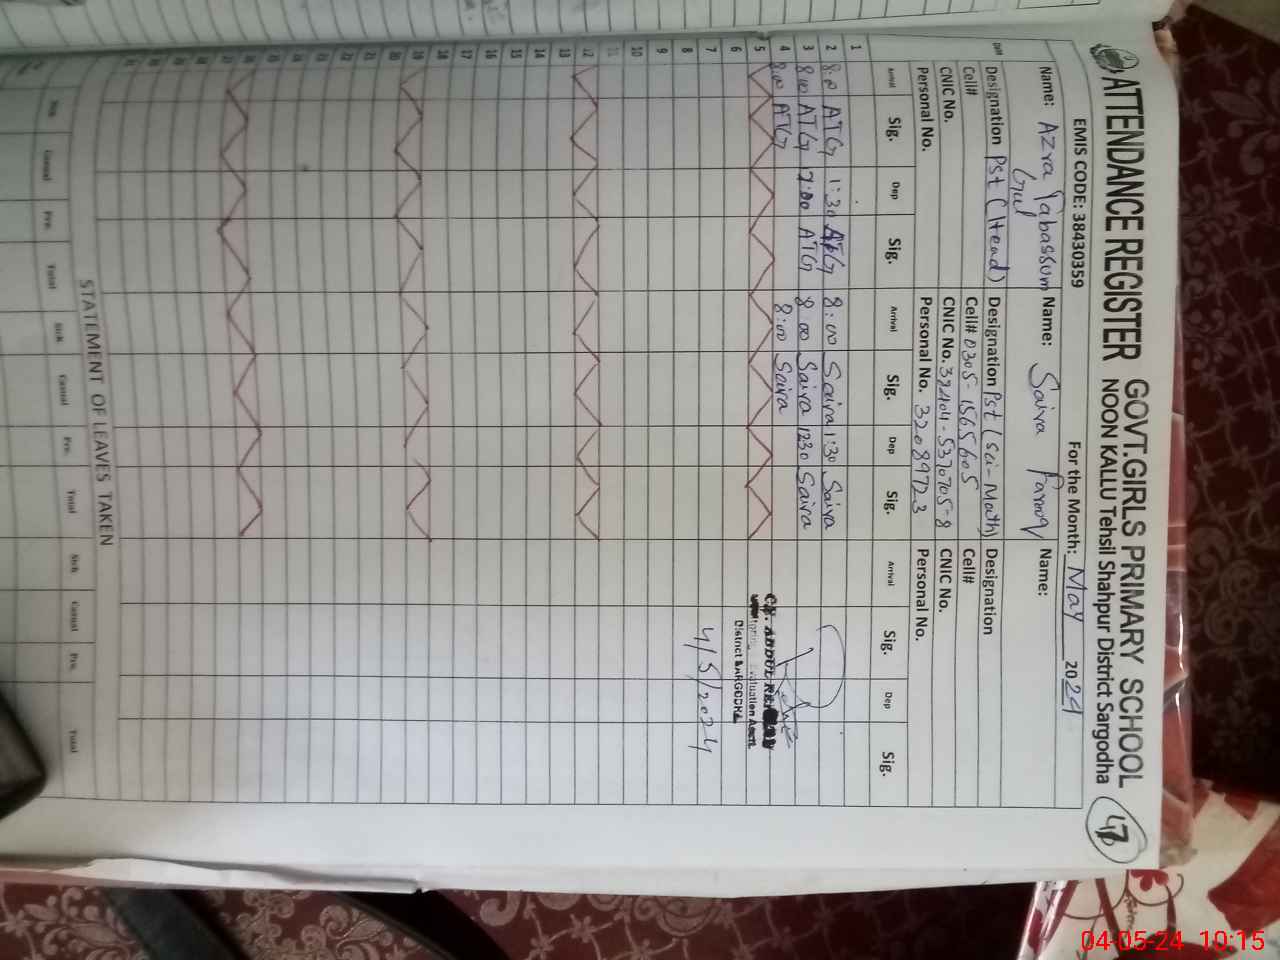 ATTENDANCE REGISTER GOVT.GIRLS PRIMARY SCHOOL
NOON KALLU Tehsil Shahpur District Sargodha
47
EMIS CODE: 38430359 For the Month: May 2024
Name: Azra Tabassum Gul Name: Saira Farooq Name:
Designation Pst (Head) Designation Pst (Sci-Math) Designation
Cell# Cell# 0305-1565605 Cell#
CNIC No. CNIC No. 32404-5370705-8 CNIC No.
Personal No. Personal No. 32089723 Personal No.
Arrival Sig. Dep Sig. Arrival Sig. Dep Sig. Arrival Sig. Dep Sig.
1
2 8:00 ATG 1:30 ATG 8:00 Saira 1:30 Saira
3 8:00 ATG ATG 8:00 Saira 1230 Saira
4 8:00 ATG 8:00 Saira
5
6
7
8
9
10
11
12
13
14
15
16
17
18
19
20
21
22
23
24
25
26
27
28
29
30
31
CH. ABDUL
District SARGODHA
4/5/2024
STATEMENT OF LEAVES TAKEN
Sick Casual Prv. Total Sick Casual Prv. Total Sick Casual Prv. Total
04-05-24 10:15